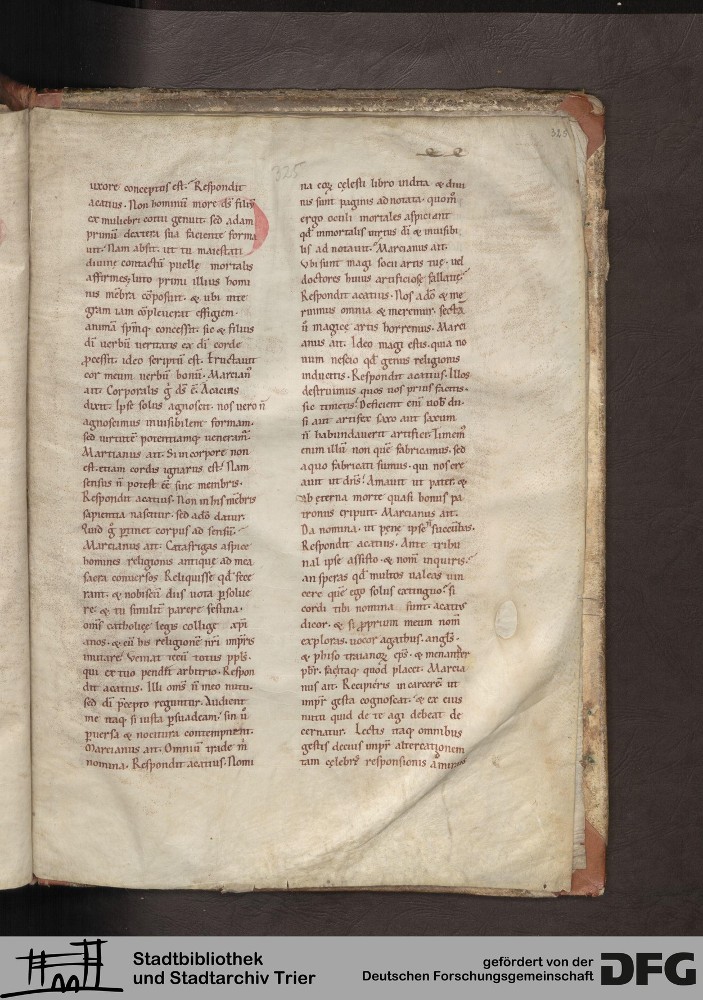 325
325
uxore conceptus est. Respondit
acatius. Non hominũ more dš filiũ
ex muliebri coitu genuit. sed adam
primũ dextera sua faciente forma
uit. Nam absit. ut tu maiestati
diuine contactũ puelle mortalis
affirmes. luto primi illius homi
nis mẽbra cõposuit. & ubi inte
gram iam cõpleuerat effigiem.
animã spĩmq; concessit. sic & filius
dĩ uerbũ ueritatis ex dĩ corde
ꝓcessit. ideo scriptũ est. Eructauit
cor meum uerbũ bonũ. Marcian᷒
ait. Corporalis ḡ dš ẽ. Acacius
dixit. Ipse solus agnoscit. nos uero ñ
agnoscimus inuisibilem formam.
sed uirtutẽ potentiamq; ueneram᷒.
Martianus ait. Si in corpore non
est. etiam cordis ignarus est. Nam
sensus ñ potest eẽ sine membris.
Respondit acatius. Non in his mẽbris
sapientia nascitur. sed a dõ datur.
Quid ḡ ꝑtinet corpus ad sensũ.
Marcianus ait. Catafrigas aspice
homines religionis antiquę ad mea
sacra conuersos. Reliquisse qd̃ fece
rant. & nobiscũ diis uota ꝑsolue
re. & tu similit̃ parere festina.
om̃s catholicę legis collige xp̃i
anos. & cũ his religionẽ nr̃i imp̃ris
imitare. Veniat tecũ totus ppls̃.
qui ex tuo pendet arbitrio. Respon
dit acatius. Illi om̃s ñ meo nutu.
sed dĩ p̃cepto reguntur. Audient
me itaq; si iusta ꝑsuadeam. sin ũ
ꝑuersa & nocitura contempnent.
Martianus ait. Omniũ trade m̃
nomina. Respondit acatius. Nomi
na eoꝝ cęlesti libro indita & diui
nis sunt paginis adnotata. quom̃
ergo oculi mortales aspiciant
qd̃ immortalis uirtus dĩ & inuisibi
lis adnotauit. Marcianus ait.
Vbi sunt magi socii artis tuę. uel
doctores huius artificiosę fallacię.
Respondit acatius. Nos a dõ & me
ruimus omnia & meremur. sectã
ũ magicę artis horremus. Marci
anus ait. Ideo magi estis. quia no
uum nescio qd̃ genus religionis
inducitis. Respondit acatius. Illos
destruimus quos uos prius facitis.
sic timetis. Deficient enĩ uob̃ dii.
si aut artifex saxo aut saxum
ñ habundauerit artifici. Timem᷒
enim illũ non quẽ fabricamus. sed
a quo fabricati sumus. qui nos cre
auit ut dñs. Amauit ut pater. &
ab eterna morte quasi bonus pa
tronus eripuit. Marcianus ait.
Da nomina. ut penę ipse ñ succũbas.
Respondit acatius. Ante tribu
nal ipse assisto. & nom̃ inquiris.
an speras qd̃ multos ualeas uin
cere quẽ ego solus extinguo. si
cordi tibi nomina sunt. acatius
dicor. & si ꝓprium meum nom̃
exploras. uocor agathus. angls̃.
& phiso traianoꝝ ep̃s. & menander
pbr̃. facitaq; quod placet. Marcia
nus ait. Recipieris in carcerẽ ut
imp̃r gesta cognoscat. & ex eius
nutu quid de te agi debeat de
cernatur. Lectis itaq; omnibus
gestis decius imp̃r altercationem
tam cęlebrẽ responsionis admiratus
Stadtbibliothek
und Stadtarchiv Trier
gefördert von der
Deutschen Forschungsgemeinschaft
DFG